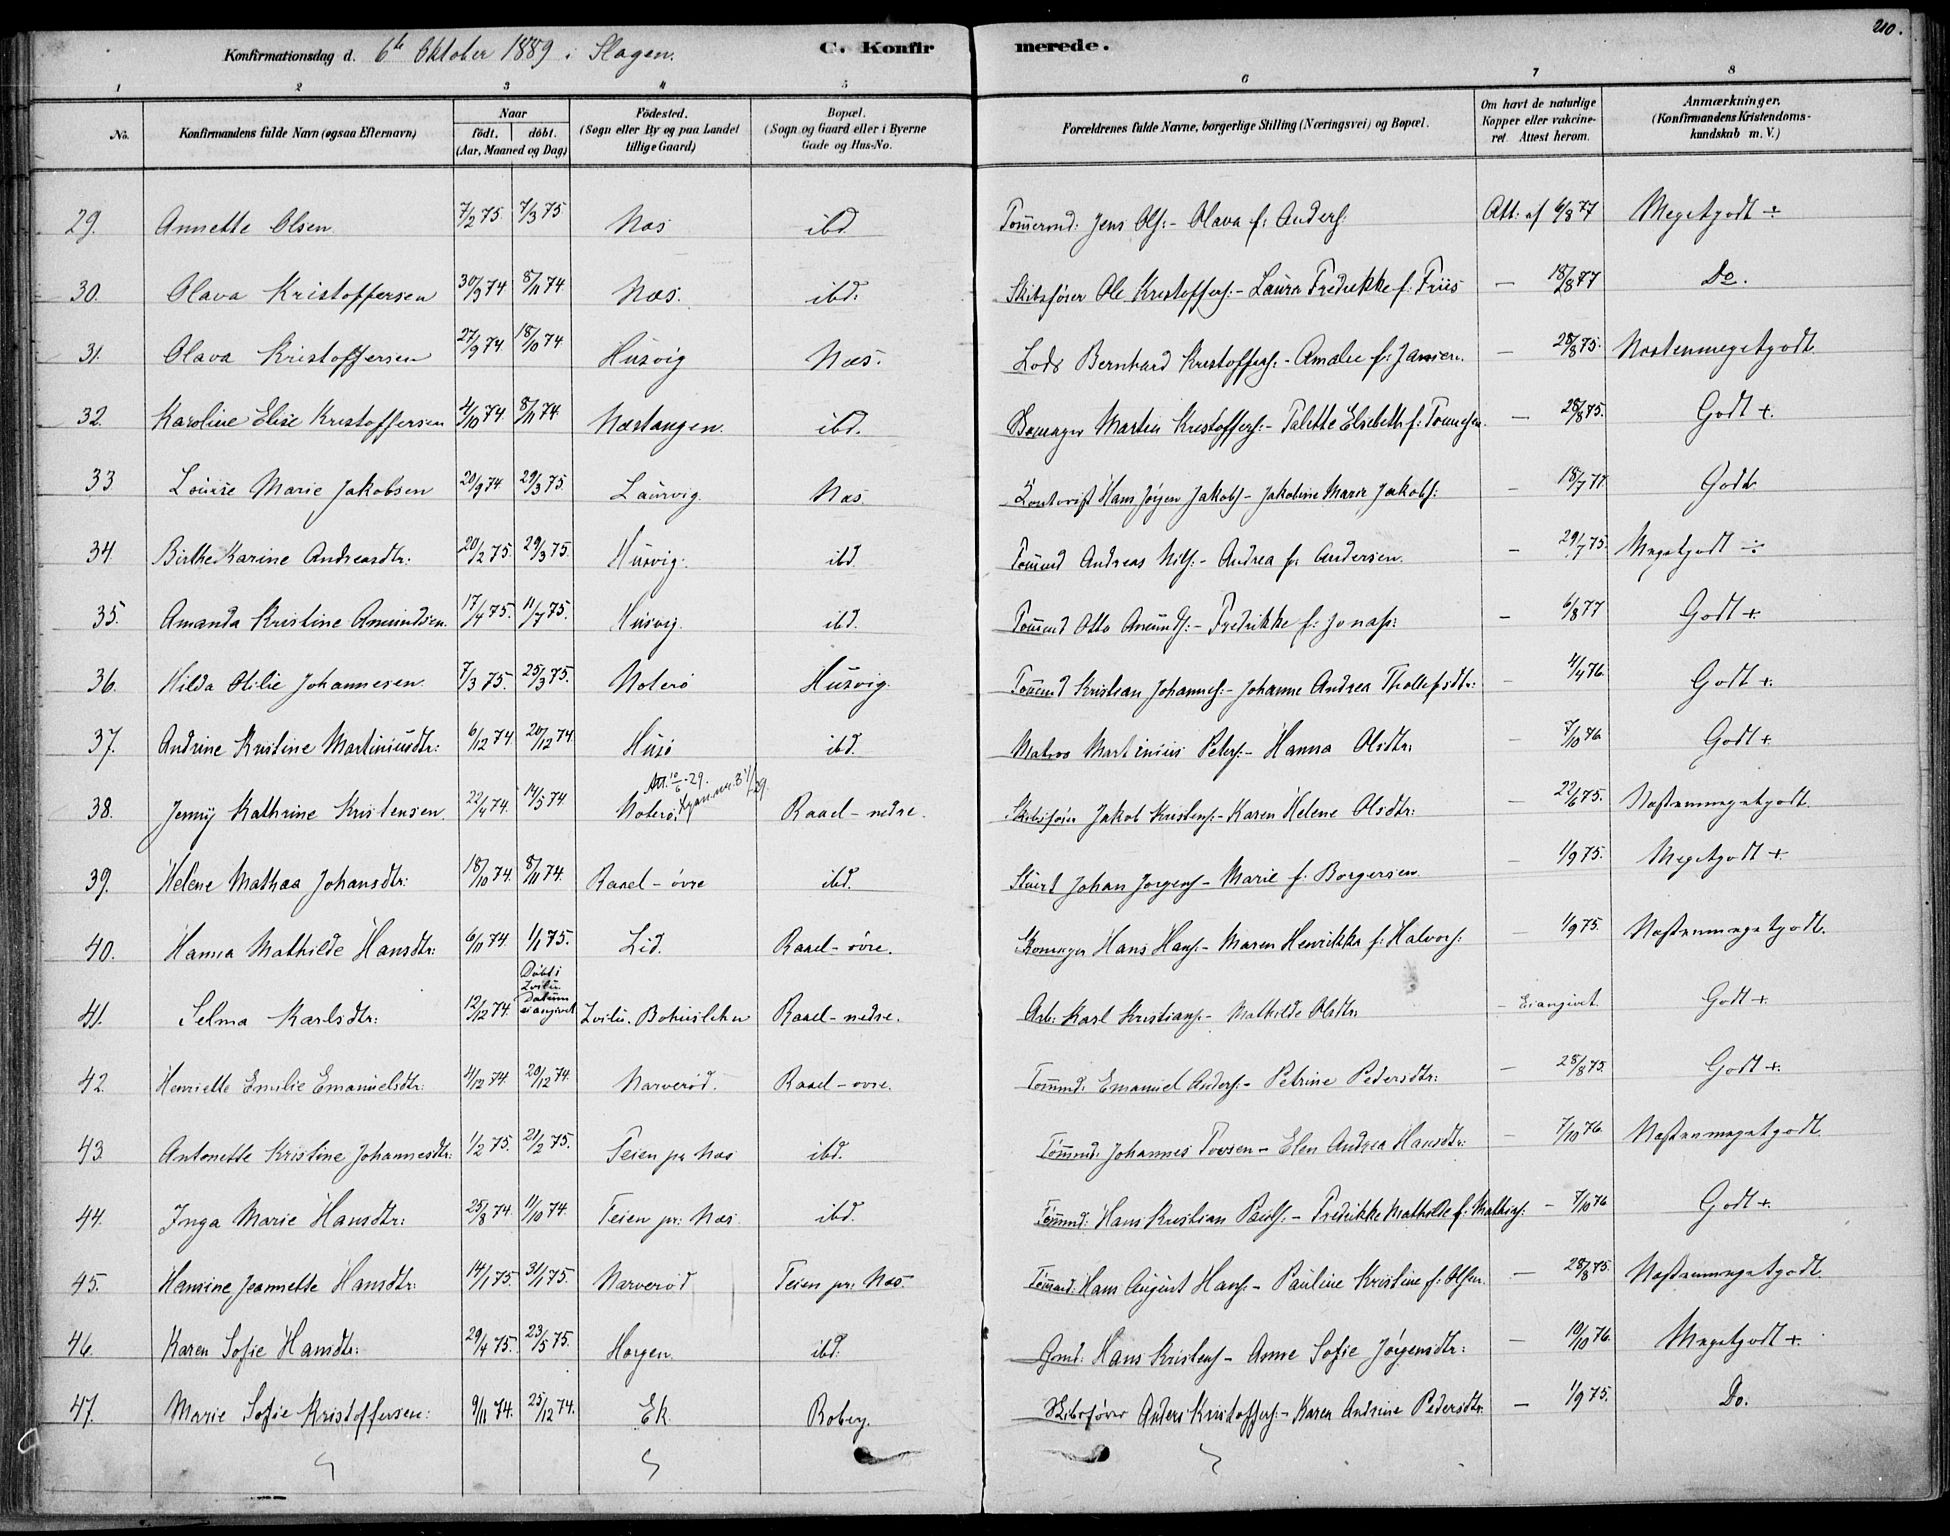 210.
Konfirmationsdag d. 6te Oktober 1889 i Slagen. C. Konfirmerede.
1 2 3 4 5 6 7 8
No. Konfirmandens fulde Navn (ogsaa Efternavn) Naar födt. döbt. (Aar, Maaned og Dag) Födested. (Sogn eller By og paa Landet tillige Gaard) Bopæl. (Sogn og Gaard eller i Byerne Gade og Hus-No. Forældrenes fulde Navne, borgerlige Stilling (Næringsvei) og Bopæl. Om havt de naturlige Kopper eller vakcineret. Attest herom. Anmærkninger. (Konfirmandens Kristendomskundskab m. V.)
29. Annette Olsen 7/2 75. 7/3 75 Næs ibd. Tømermd: Jens Ols:- Olava f: Anders: Att: af 6/8 77 Megetgodt ÷
30. Olava Kristoffersen 30/9 74 8/11 74 Næs. ibd. Skibsfører Ole Kristoffers:- Laura Fredrikke f: Friis — 18/8 77 Do.
31. Olava Kristoffersen 27/9 74 18/10 74 Husvig Næs. Lods Bernhard Kristoffers:- Amalie f: Jansen. — 28/8 75. Næstenmegetgodt
32. Karoline Elise Kristoffersen 4/10 74 8/11 74. Næstangen ibd. Martin Kristoffers:- Talette Elisebeth f: Tønnesen. — 28/8 75. Godt +.
33 Louise Marie Jakobsen 20/9 74 29/3 75. Laurvig Næs Kontorist Hans Jørgen Jakobs- Jakobine Marie Jakobs: — 18/7 77 Godt
34 Birthe Karine Andreasdtr: 20/2 75. 29/3 75 Husvig. ibd. Tømmd Andreas Nils:- Andrea f: Andersen. — 29/7 75. Megetgodt ÷
35. Amanda Kristine Amundsen. 17/4 75. 11/7 75. Husvig. ibd. Tømmd Otto Amunds:- Fredrikke f: Jonas: — 6/8 77 Godt +
36. Hilda Otilie Johannesen. 7/3 75. 25/3 75. Noterö Husvig. Tømmd Kristian Johannes:- Johanne Andrea Thollefsdtr: — 4/4 76. Godt +.
37. Andrine Kristine Martiniusdtr: 6/12 74 20/12 74. Husö ibd. Matros Martinius Peters- Hanna Olsdtr: — 7/10 76 Godt +
38. Jenny Kathrine Kristensen 22/4 74. 14/5 74 Att. 10/6-29. Noterö. Raael-nedre. Skibsfører Jakob Kristens:- Karen Helene Olsdtr: — 22/6 75. Næstenmegetgodt
39. Helene Mathea Johansdtr: 18/10 74 8/11 74. Raael-övre ibd. Stuert Johan Jørgens- Marie f: Borgersen — 1/9 75. Megetgodt +
40. Hanna Mathilde Hansdtr: 6/11 74. 1/1 75. Lid. Raael-övre. Hans Hans- Maren Henrikka f: Halvors: — 1/9 75. Næstenmegetgodt.
41. Selma Karlsdtr: 12/12 74. Döbt i Datum ei angivet Bohuslehn Raael-nedre. Arb: Karl Kristians- Mathilde Olsdtr: — Ei angivet Godt +.
42. Henriette Emilie Emanuelsdtr: 4/12 74. 20/12 74. Narveröd. Raael-ovre. Tømmd: Emanuel Anders:- Petrine Pedersdtr: — 28/8 75. Godt +.
43. Antonette Kristine Johannesdtr: 1/2 75. 21/2 75. Teien pr Næs ibd. Tømmd: Johannes - Elen Andrea Hansdtr: — 7/10 76. Næstenmegetgodt
44. Inga Marie Hansdtr: 25/8 74. 11/10 74. Teien pr: Næs ibd. Tømmd: Hans Kristian Pauls:- Fredrikke Mathilde f: Mathis: — 7/10 76 Godt +.
45. Hansine Jeannette Hansdtr: 14/1 75. 31/1 75. Narveröd Teien pr: Næs- Tømmd: Hans August Hans:- Pauline Kristine f: Olsen. — 28/8 75. Næstenmegetgodt
46. Karen Sofie Hansdtr: 29/4 75. 23/5 75. Horgen ibd. Grmd: Hans Kristens- Anne Sofie Jørgensdtr: — 10/10 76. Megetgodt +.
47. Marie Sofie Kristoffersen: 9/11 74. 25/12 74. Ek. Roberg. Skibsfører Anders Kristoffers:- Karen Andrine Pedersdtr. — 1/9 75. Do.